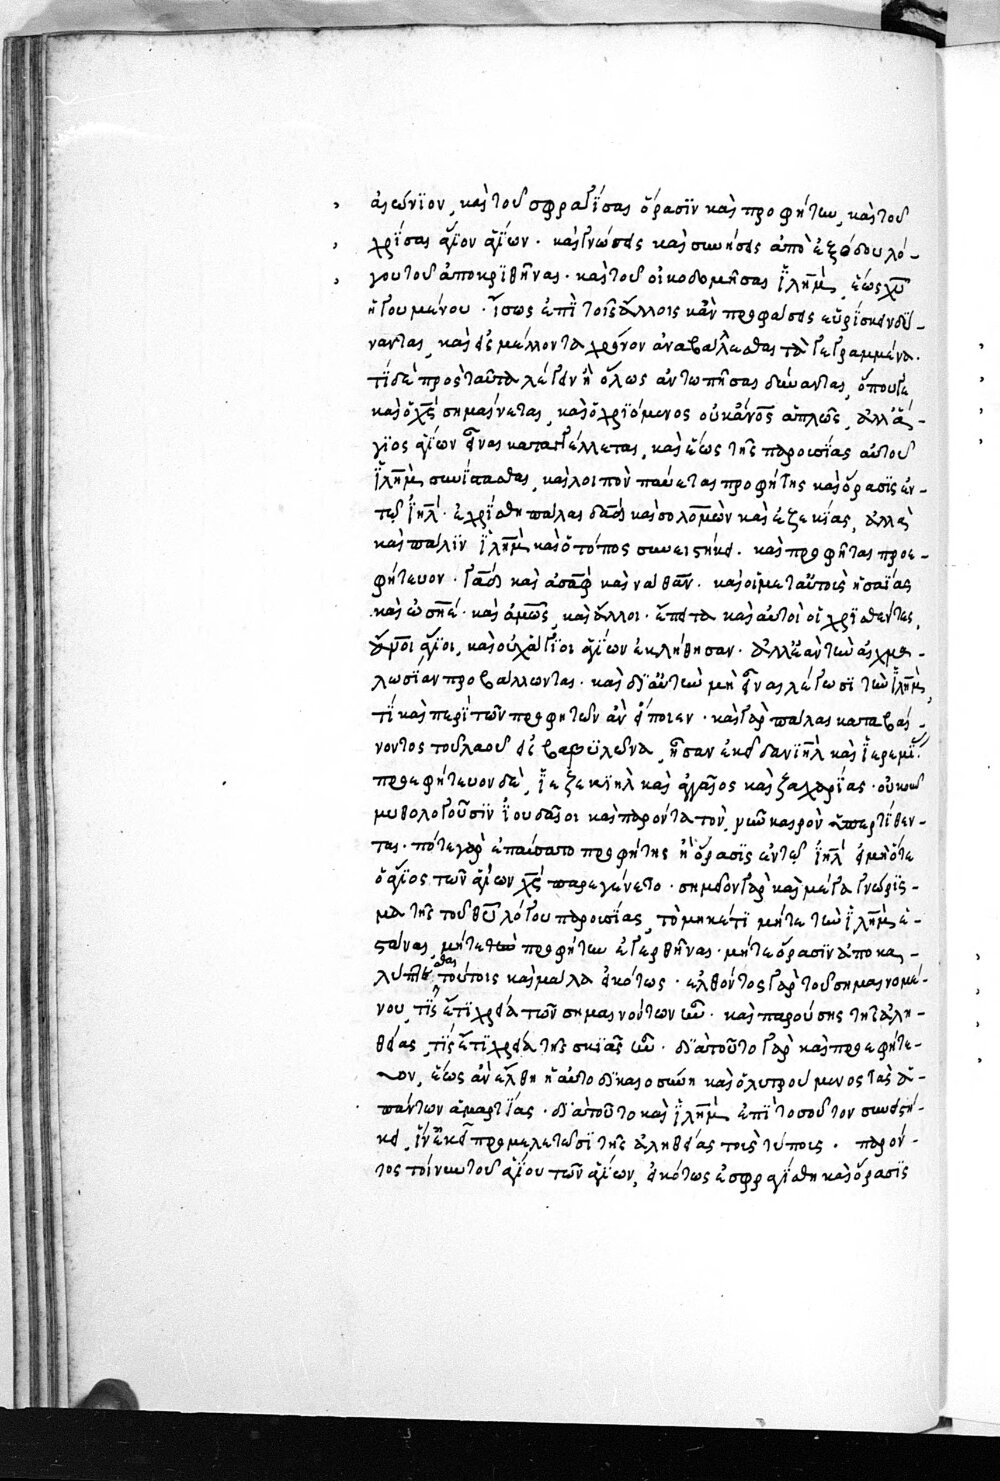 αἰώνιον, καὶ τοῦ σφραγΐσαι ὅρασϊν καὶ προφήτην, καὶ τοῦ
χρΐσαι ἅγϊον ἁγΐων · καὶ γνώσει καὶ συνήσει ἀπὸ ἐξόδου λό-
γου τοῦ ἀποκρϊθῆναι · καὶ τοῦ οἰκοδομῆσαι ϊλημ, ἕως χυ
ἡγουμένου · ἴσως ἐπὶ τοῖς ἄλλοις κἂν προφάσεις εὑρΐσκειν δύ-
νανται, καὶ εἰς μέλλοντα χρόνον ἀναβάλλεσθαι τὰ γεγραμμένα ·
τΐ δὲ πρὸς ταῦτα λέγειν ἢ ὅλως ἀντωπῆσαι δύνανται, ὅπου γε
καὶ ὁ χς σημαίνεται, καὶ ὁ χρϊόμενος οὐκ ἄνος ἁπλῶς, ἀλλ' ἅ-
γϊος ἁγΐων εἶναι καταγγέλλεται, καὶ ἕως τῆς παρουσΐας αὐτοῦ
ϊλημ συνΐσταθαι, καὶ λοιπὸν παύεται προφήτης καὶ ὅρασϊς ἐν
τῷ ϊηλ · ἐχρΐσθη πάλαι δαδ καὶ σολομὼν καὶ ἐζεκΐας, ἀλλὰ
καὶ πάλϊν ϊλημ καὶ ὁ τόπος συνειστήκει · καὶ προφῆται προε-
φήτευον · γαδ καὶ ἀσαφ καὶ ναθαν · καὶ οἱ μετ' αὐτοῖς ἠσαΐας
καὶ ὠσηέ · καὶ ἀμως, καὶ ἄλλοι · ἔπειτα καὶ αὐτοὶ οἱ χρϊσθέντες,
ἄνοι ἅγϊοι, καὶ οὐχ ἅγϊοι ἁγΐων ἐκλήθησαν · ἀλλ' ἐὰν τὴν αἰχμα-
λωσΐαν προβάλλωνται · καὶ δϊ' αὐτὴν μὴ εἶναι λέγωσϊ τὴν ϊλημ,
τΐ καὶ περὶ τῶν προφητῶν ἂν εἴποιεν · καὶ γὰρ πάλαι καταβαί-
νοντος τοῦ λαοῦ εἰς βαβϋλῶνα, ἦσαν ἐκεῖ δανϊὴλ καὶ ϊερεμΐ
προεφήτευον δὲ, ϊεζεκϊηλ καὶ ἀγγαῖος καὶ ζαχαρΐας · οὐκοῦν
μυθολογοῦσϊν ϊουδαῖοι καὶ παρόντα τὸν νῦν καιρὸν ὑπερτΐθεν-
ται · πότε γὰρ ἐπαύσατο προφήτης ἢ ὅρασϊς ἐν τῷ ϊηλ εἰ μὴ ὅτε
ὁ ἅγϊος τῶν ἁγΐων χς παρεγένετο · σημεῖον γὰρ καὶ μέγα γνώρϊσ-
μα τῆς τοῦ θυ λόγου παρουσΐας, τὸ μηκέτϊ μήτε τὴν ϊλημ ἑ-
στάναι, μήτε προφήτην ἐγερθῆναι · μήτε ὅρασϊν ἀποκα-
λύπτεσθαι τούτοις καὶ μάλα εἰκότως · ἐλθόντος γὰρ τοῦ σημαινομέ-
νου, τΐς ἔτϊ χρεία τῶν σημαινούτων ἦν · καὶ παρούσης τῆς ἀλη-
θείας, τΐς ἔτϊ χρεία τῆς σκϊᾶς ἦν · δϊὰ τοῦτο γὰρ καὶ προεφήτε-
υον, ἕως ἂν ἔλθη ἡ αὐτοδϊκαιοσύνη καὶ ὁ λυτρούμενος τὰς ἁ-
πάντων ἁμαρτΐας · δϊὰ τοῦτο καὶ ϊλημ ἐπὶ τοσοῦτον συνειστή-
κει, ϊν' ἐκεῖ προμελετῶσϊ τῆς ἀληθείας τοὺς τύπους · παρόν-
τος τοίνυν τοῦ ἁγΐου τῶν ἁγΐων, εἰκότως ἐσφραγΐσθη καὶ ὅρασϊς